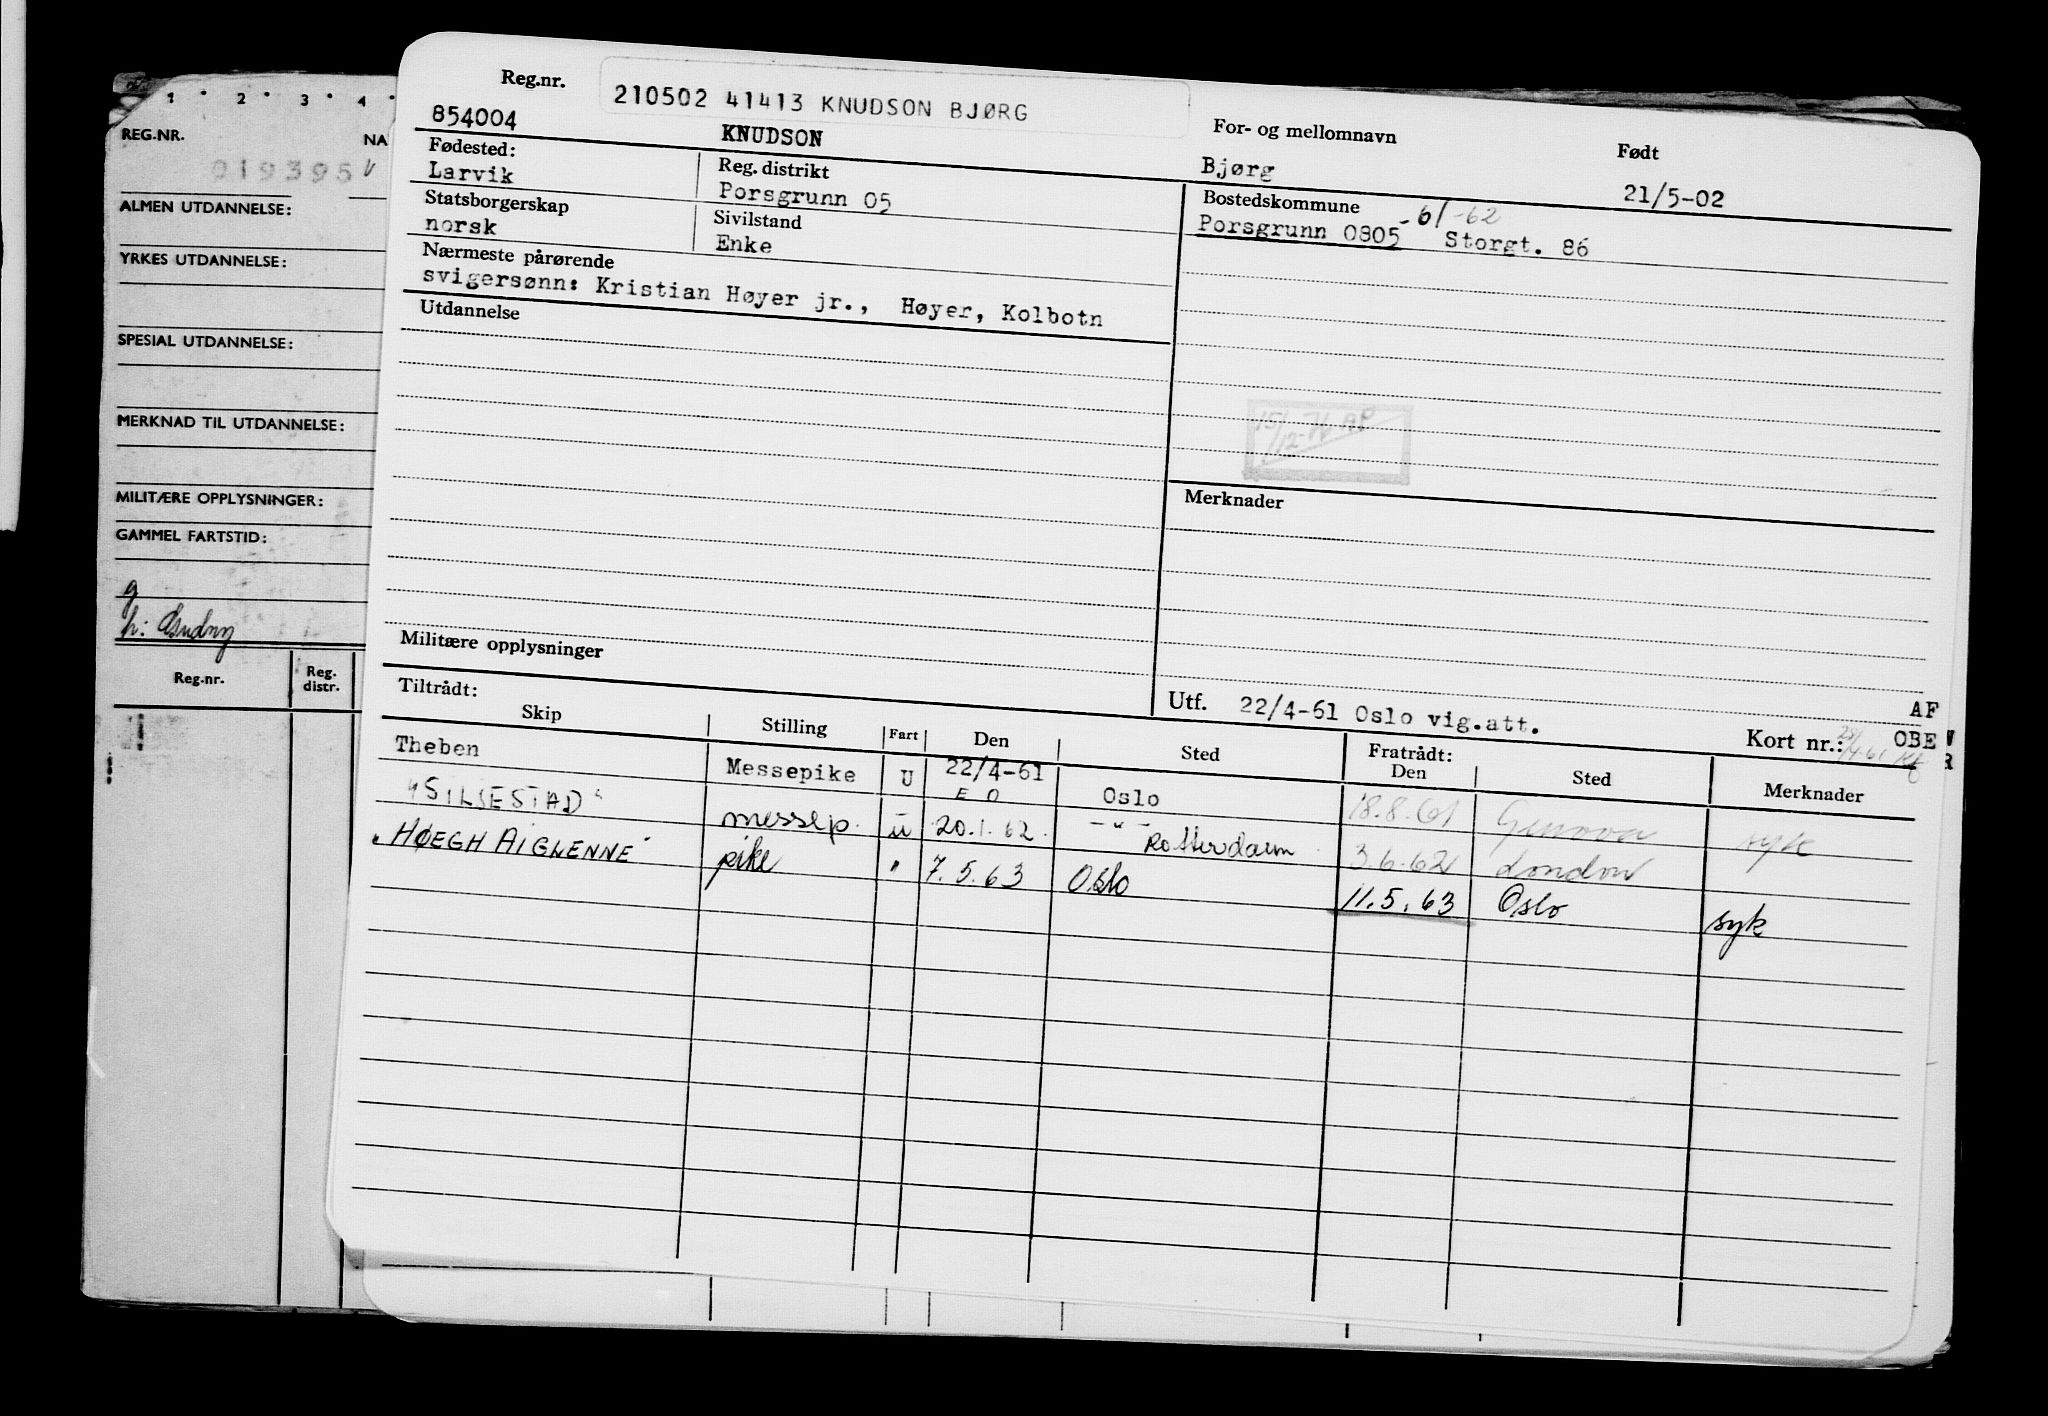 1 · 2 · 3 · 4 ·
REG.NR.
NA
019395
ALMEN UTDANNELSE:
YRKES UTDANNELSE:
SPESIAL UTDANNELSE:
MERKNAD TIL UTDANNELSE:
MILITÆRE OPPLYSNINGER:
GAMMEL FARTSTID:
g
h:
Reg.nr.
Reg. distr.
Reg.nr.
210502 41413 KNUDSON BJØRG
854004
KNUDSON
For- og mellomnavn
Født
Bjørg
21/5-02
Fødested:
Larvik
Reg. distrikt
Porsgrunn 05
Bostedskommune
-6/-62
Porsgrunn 0805 Storgt. 86
Statsborgerskap
norsk
Sivilstand
Enke
Nærmeste pårørende
svigersønn: Kristian Høyer jr., Høyer, Kolbotn
Utdannelse
15/12-76 AP
Merknader
Militære opplysninger
Utf. 22/4-61 Oslo vig.att.
AF
Kort nr.:
OBE
R
Tiltrådt:
Skip Stilling Fart Den Sted Fratrådt: Den Sted Merknader
Theben Messepike U 22/4-61 Oslo 18.8.61 Genova syk
E O
messep. u 20.1.62 -"- Rotterdam 3.6.62 London
"HØEGH AIGLENNE" pike " 7.5.63 Oslo 11.5.63 Oslo syk